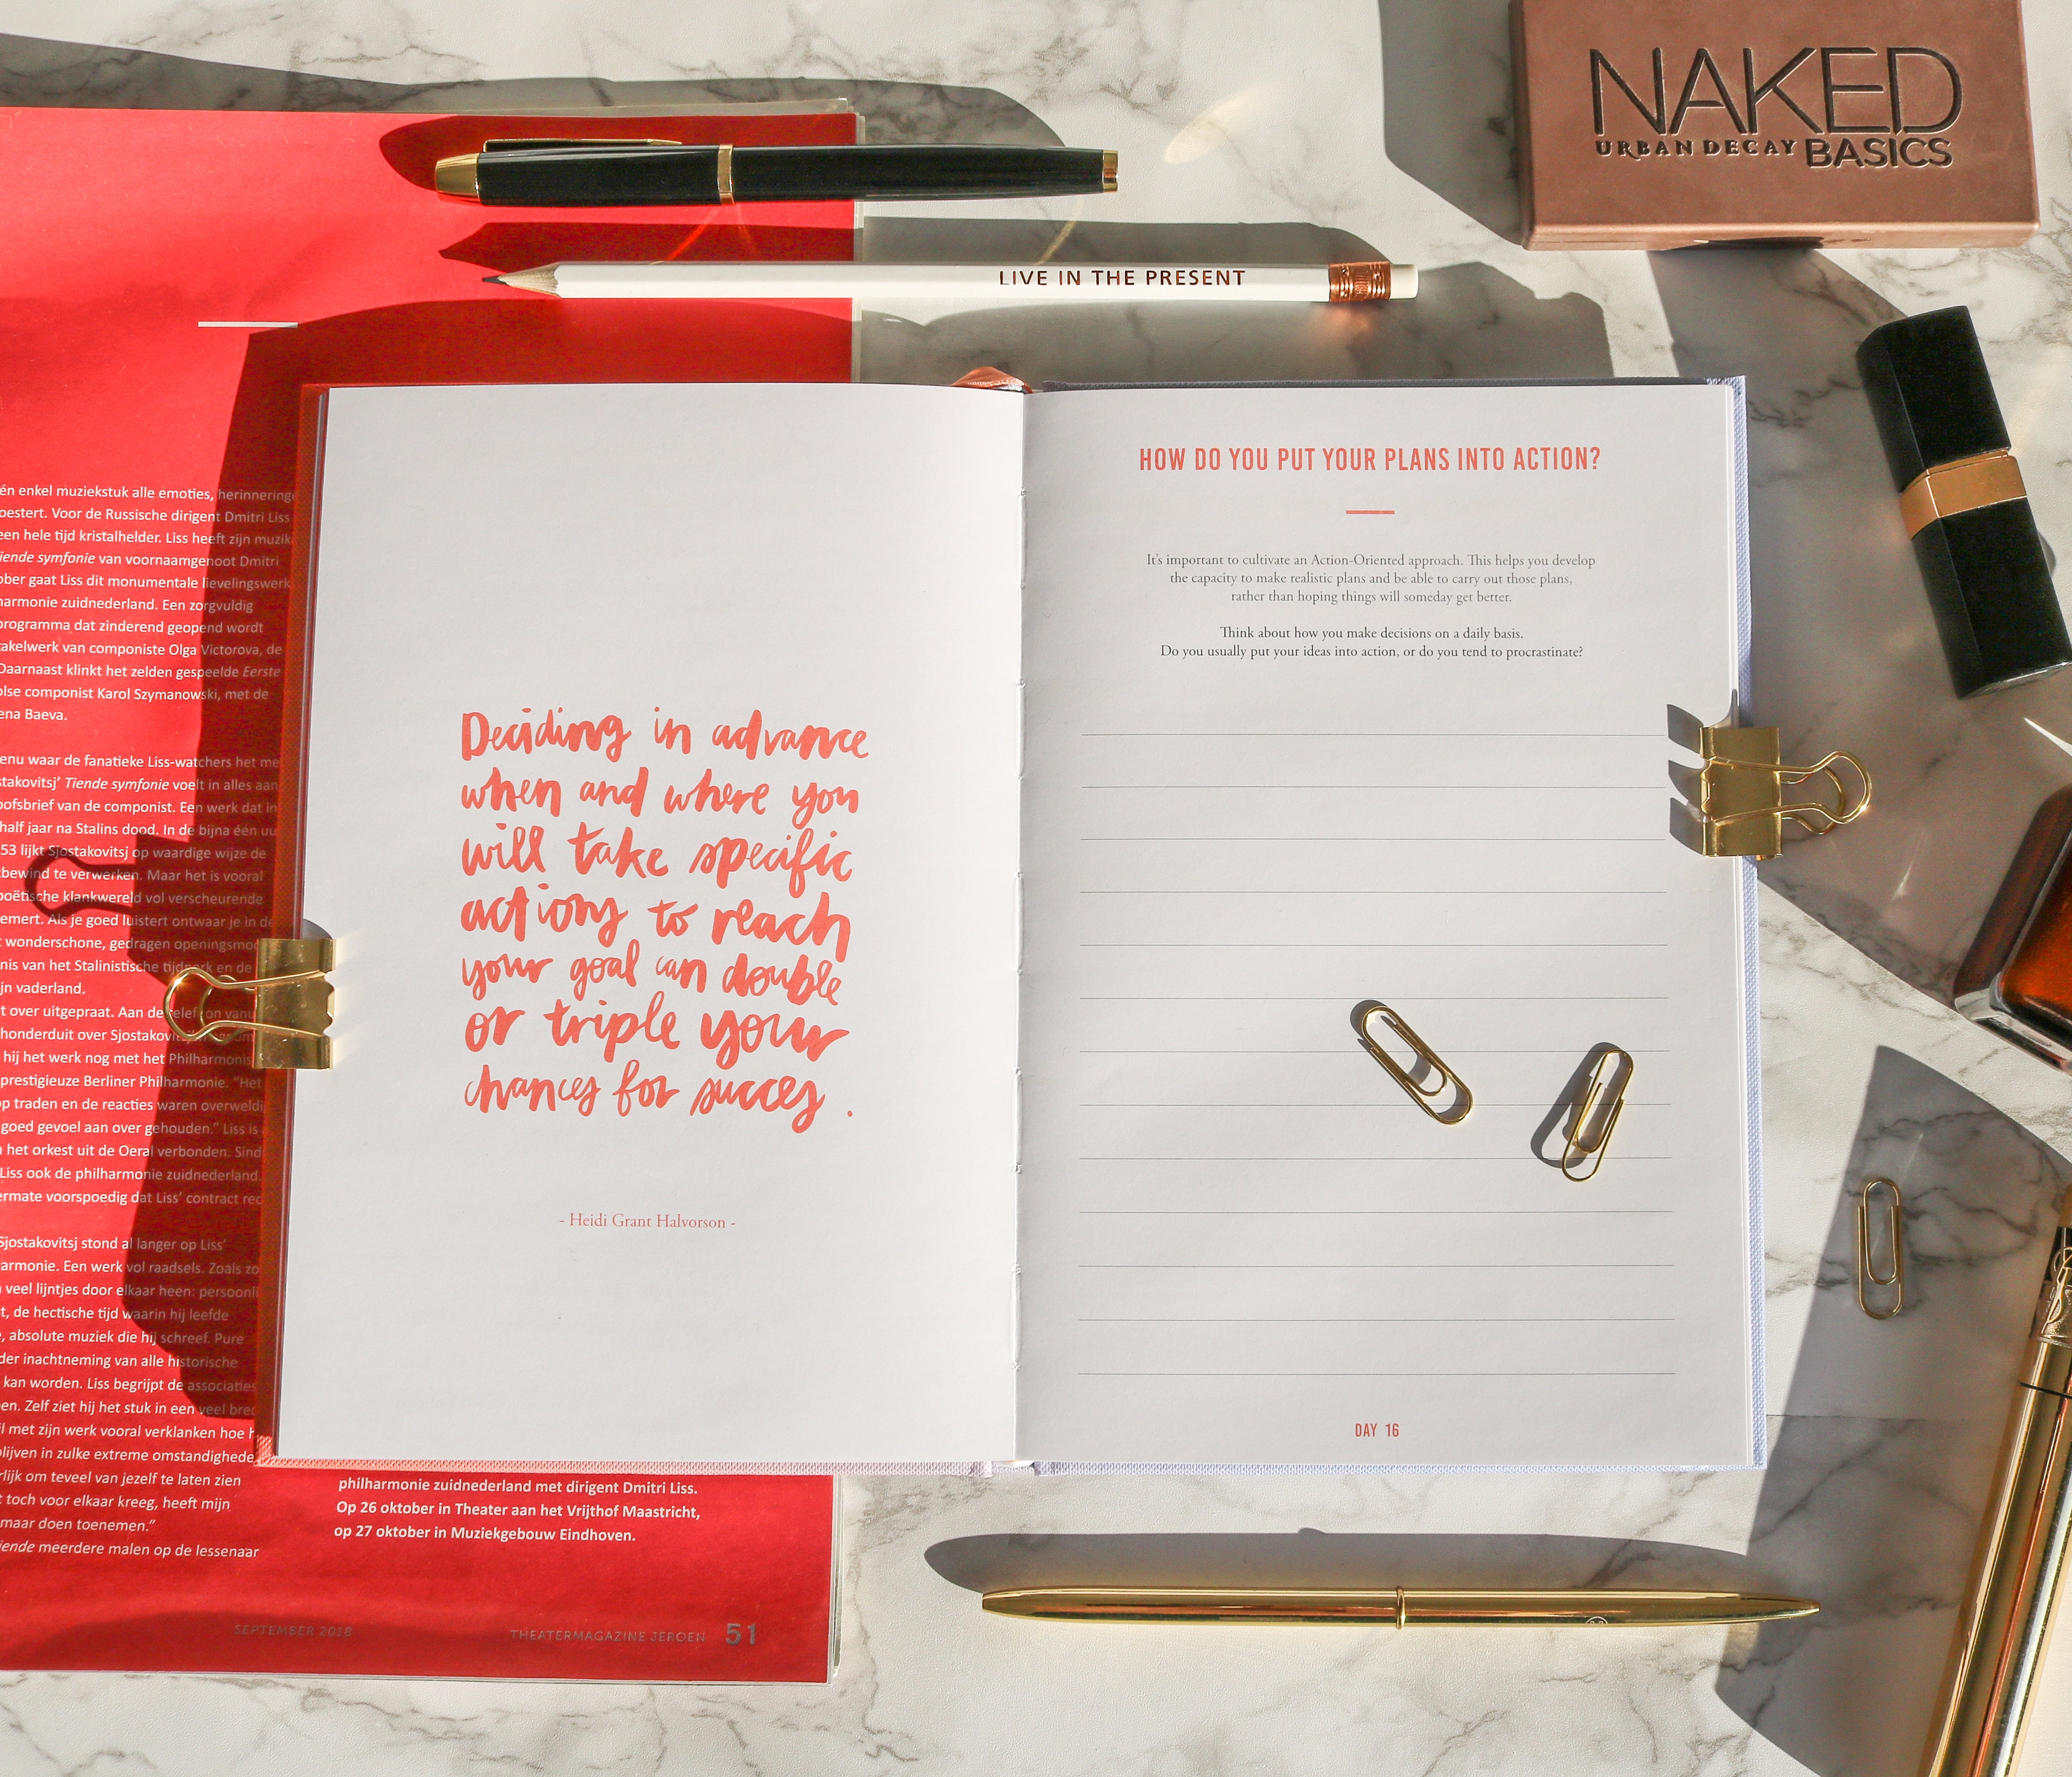 NAKED
URBAN DECAY BASICS
LIVE IN THE PRESENT
én enkel muziekstuk alle emoties, herinneringe
oestert. Voor de Russische dirigent Dmitri Liss
een hele tijd kristalhelder. Liss heeft zijn muzik
iende symfonie van voornaamgenoot Dmitri
ober gaat Liss dit monumentale lievelingswerk
harmonie zuidnederland. Een zorgvuldig
programma dat zinderend geopend wordt
takelwerk van componiste Olga Victorova, de
Daarnaast klinkt het zelden gespeelde Eerste
olse componist Karol Szymanowski, met de
ena Baeva.
enu waar de fanatieke Liss-watchers het me
stakovitsj' Tiende symfonie voelt in alles aan
oofsbrief van de componist. Een werk dat in
half jaar na Stalins dood. In de bijna één uu
53 lijkt Sjostakovitsj op waardige wijze de
bewind te verwerken. Maar het is vooral
poëtische klankwereld vol verscheurende
emert. Als je goed luistert ontwaar je in de
t wonderschone, gedragen openingsmo
nis van het Stalinistische tijdperk en de
jn vaderland.
t over uitgepraat. Aan de telefoon vanu
honderduit over Sjostakovi
hij het werk nog met het Philharmonis
prestigieuze Berliner Philharmonie. "Het
op traden en de reacties waren overweldi
goed gevoel aan over gehouden." Liss is
n het orkest uit de Oeral verbonden. Sind
Liss ook de philharmonie zuidnederland.
ermate voorspoedig dat Liss' contract rec
Sjostakovitsj stond al langer op Liss'
armonie. Een werk vol raadsels. Zoals zo
n veel lijntjes door elkaar heen: persoonli
t, de hectische tijd waarin hij leefde
, absolute muziek die hij schreef. Pure
der inachtneming van alle historische
kan worden. Liss begrijpt de associaties
en. Zelf ziet hij het stuk in een veel bred
l met zijn werk vooral verklanken hoe h
blijven in zulke extreme omstandighede
rlijk om teveel van jezelf te laten zien
t toch voor elkaar kreeg, heeft mijn
maar doen toenemen."
iende meerdere malen op de lessenaar
philharmonie zuidnederland met dirigent Dmitri Liss.
Op 26 oktober in Theater aan het Vrijthof Maastricht,
op 27 oktober in Muziekgebouw Eindhoven.
SEPTEMBER 2018 THEATERMAGAZINE JEROEN 51
Deciding in advance
when and where you
will take specific
actions to reach
your goal can double
or triple your
chances for succes.
- Heidi Grant Halvorson -
HOW DO YOU PUT YOUR PLANS INTO ACTION?
It's important to cultivate an Action-Oriented approach. This helps you develop
the capacity to make realistic plans and be able to carry out those plans,
rather than hoping things will someday get better.
Think about how you make decisions on a daily basis.
Do you usually put your ideas into action, or do you tend to procrastinate?
DAY 16